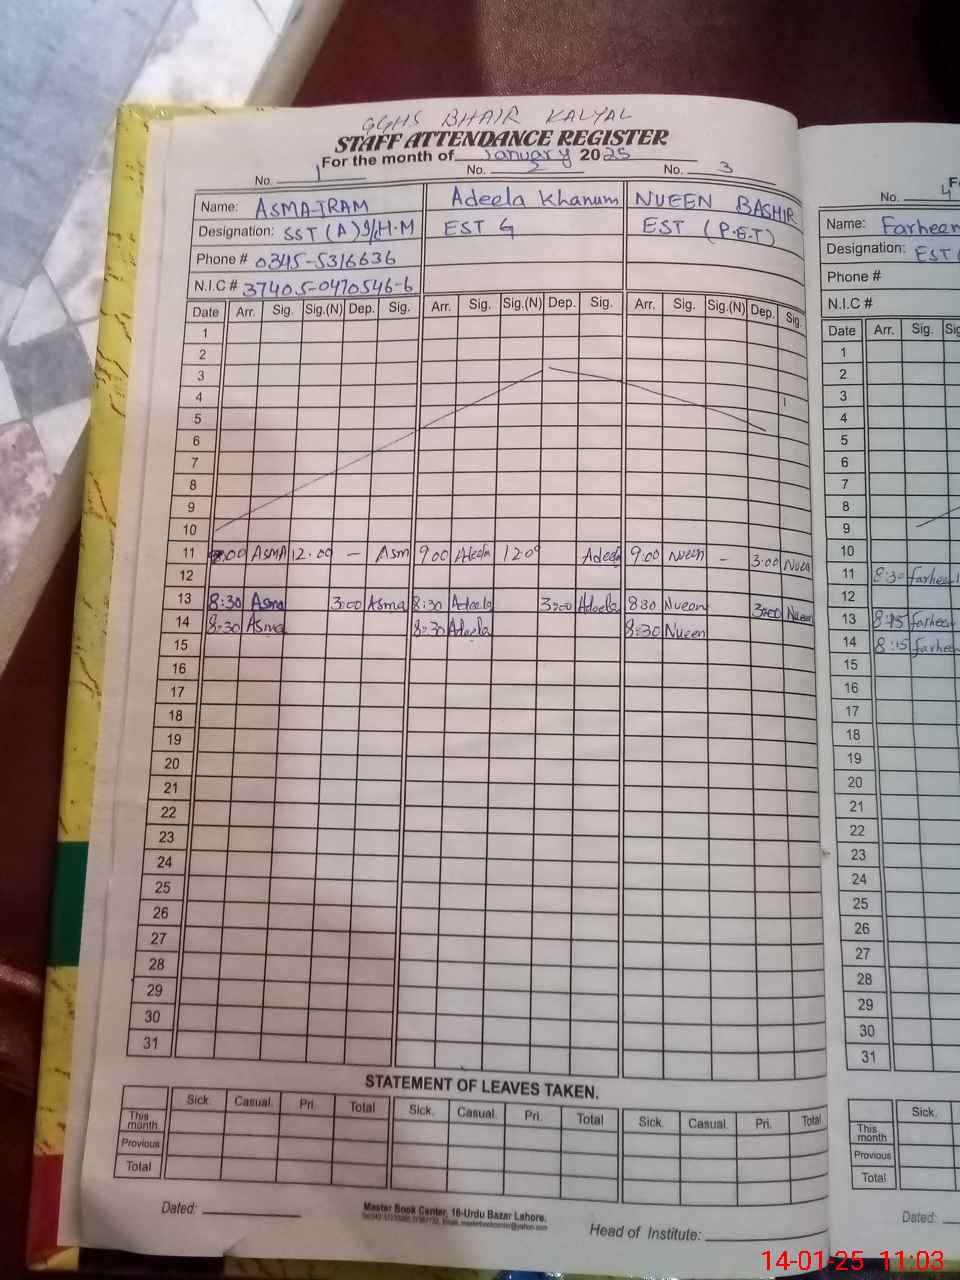 GGHS BHAIR KALYAL
STAFF ATTENDANCE REGISTER
For the month of January 2025
No. 1 No. 2 No. 3
Name: ASMA-IRAM Adeela Khanum NUEEN BASHIR
Designation: SST (A) I/H.M EST G EST (P.E.T)
Phone # 0345-5316636
N.I.C # 37405-0470546-6
Date Arr. Sig. Sig.(N) Dep. Sig. Arr. Sig. Sig.(N) Dep. Sig. Arr. Sig. Sig.(N) Dep. Sig.
1
2
3
4
5
6
7
8
9
10
11 9:00 ASMA 12.00 – Asm 9 00 Adeela 12.00 Adeela 9:00 Nueen – 3:00 Nueen
12
13 8:30 Asma 3:00 Asma 8:30 Adeela 3:00 Adeela 8:30 Nueen 3:00 Nueen
14 8:30 Asma 8:30 Adeela 8:30 Nueen
15
16
17
18
19
20
21
22
23
24
25
26
27
28
29
30
31
STATEMENT OF LEAVES TAKEN.
Sick. Casual. Pri. Total Sick. Casual. Pri. Total Sick. Casual. Pri. Total
This month
Previous
Total
Dated:
Master Book Center, 16-Urdu Bazar Lahore.
Head of Institute:
No. 4
Name: Farheen
Designation: EST
Phone #
N.I.C #
Date Arr. Sig. Sig
1
2
3
4
5
6
7
8
9
10
11 8:30 farheen
12
13 8:15 farheen
14 8:15 farheen
15
16
17
18
19
20
21
22
23
24
25
26
27
28
29
30
31
Sick.
This month
Previous
Total
Dated:
14-01-25 11:03